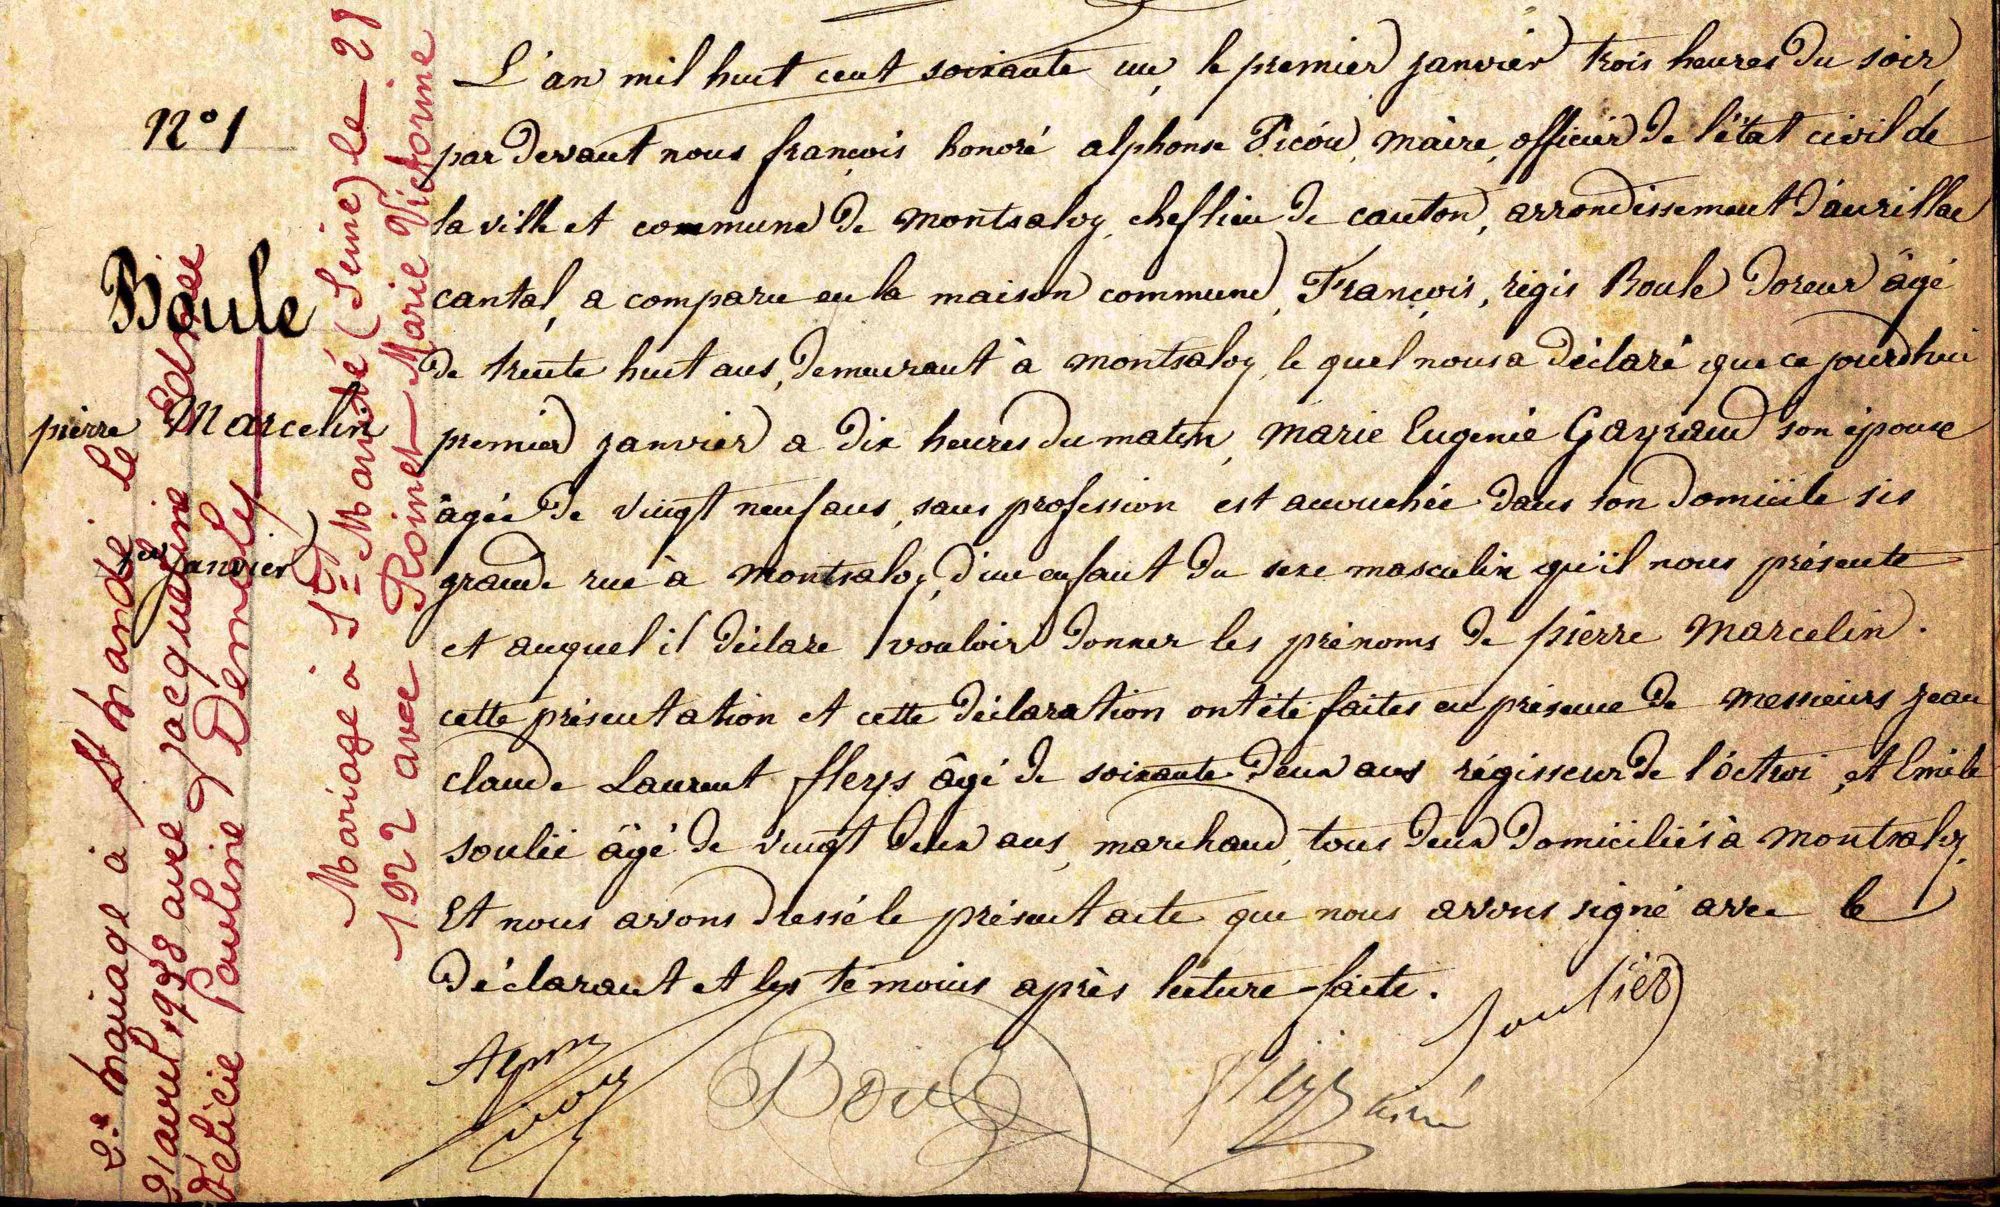 N° 1
Boule
pierre Marcelin
1er janvier
L'an mil huit cent soixante un, le premier janvier trois heures du soir,
par devant nous françois honoré alphonse Picou, maire, officier de l'état civil de
la ville et commune de montsalvy, chef lieu de canton, arrondissement d'aurillac
cantal, a comparu en la maison commune, François, régis Boule doreur âgé
de trente huit ans, demeurant à montsalvy, le quel nous a déclaré que ce jourdhui
premier janvier a dix heures du matin, marie Eugenie Gayraud son épouse
âgée de vingt neuf ans, sans profession est accouchée dans son domicile sis
grande rue à montsalvy, d'un enfant du sexe masculin qu'il nous présente
et auquel il déclare vouloir donner les prénoms de pierre marcelin.
cette présentation et cette déclaration ont été faites en présence de messieurs jean
claude Laurent fleys âgé de soixante deux ans régisseur de l'octroi, et Emile
soulié âgé de vingt deux ans, marchand, tous deux domiciliés à montsalvy.
Et nous avons dressé le présent acte que nous avons signé avec le
déclarant et les témoins après lecture faite.
Soulier
Boule
Fleys ainé
Mariage à St Mandé (Seine) le 28
1922 avec Roinet Marie Victorine
2e mariage à St Mandé le
21 avril 1938 avec Jacqueline Edmée
Félicie Pauline Demoly